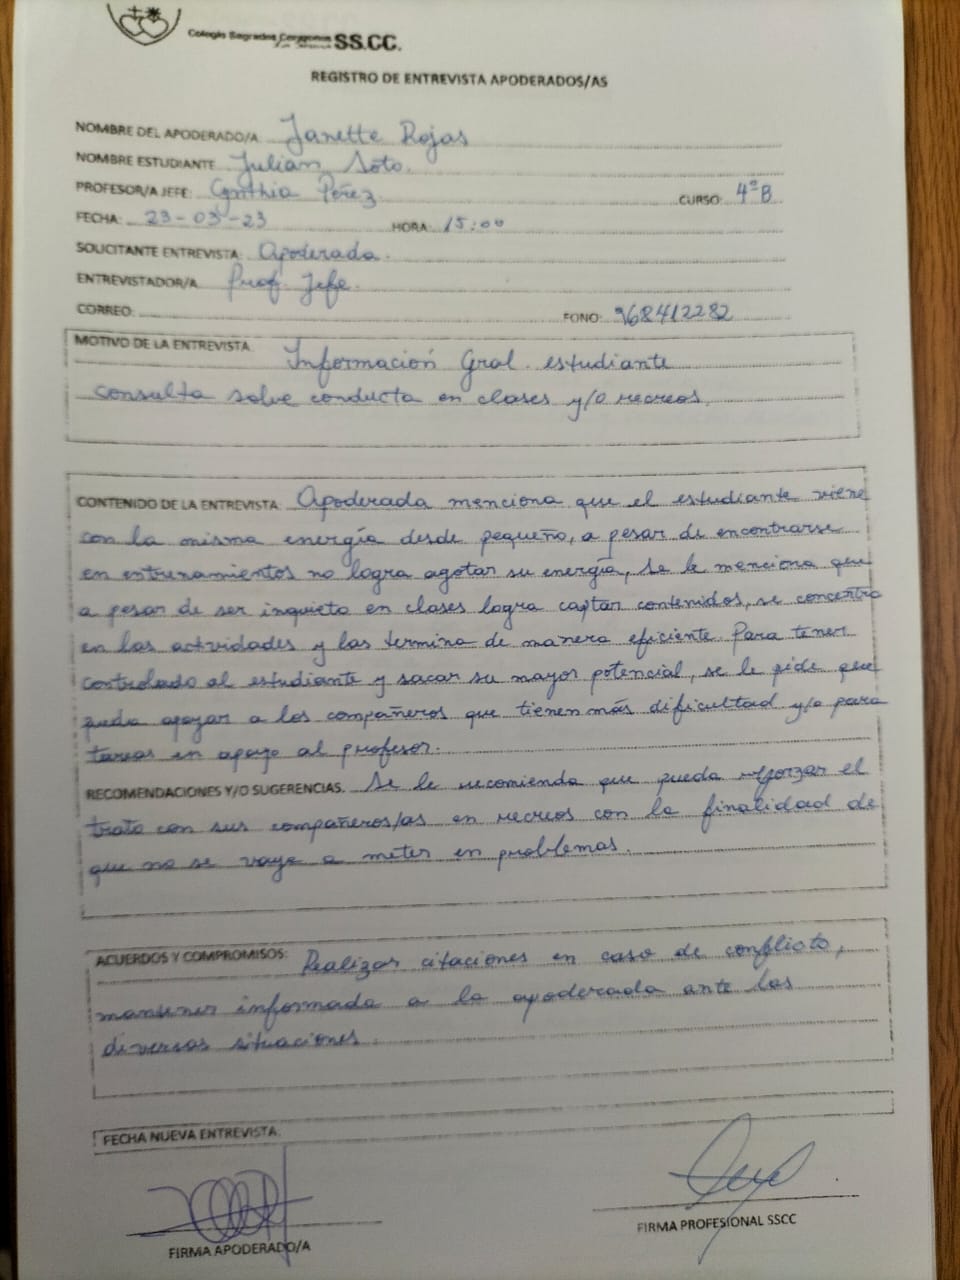 Colegio Sagrados Corazones SS.CC.
REGISTRO DE ENTREVISTA APODERADOS/AS
NOMBRE DEL APODERADO/A Janette Rojas
NOMBRE ESTUDIANTE Julian Soto.
PROFESOR/A JEFE: Cynthia Pérez CURSO: 4ºB
FECHA: 23-03-23 HORA: 15:00
SOLICITANTE ENTREVISTA: Apoderada.
ENTREVISTADOR/A Prof. Jefe.
CORREO: FONO: 968412282
MOTIVO DE LA ENTREVISTA: Información Gral. estudiante
consulta sobre conducta en clases y/o recreos.
CONTENIDO DE LA ENTREVISTA: Apoderada menciona que el estudiante viene
con la misma energía desde pequeño, a pesar de encontrarse
en entrenamientos no logra agotar su energía, se le menciona que
a pesar de ser inquieto en clases logra captar contenidos, se concentra
en las actividades y las termina de manera eficiente. Para tener
controlado al estudiante y sacar su mayor potencial, se le pide que
pueda apoyar a los compañeros que tienen más dificultad y/o para
tareas en apoyo al profesor.
RECOMENDACIONES Y/O SUGERENCIAS. Se le recomienda que pueda reforzar el
trato con sus compañeros/as en recreos con la finalidad de
que no se vaya a meter en problemas.
ACUERDOS Y COMPROMISOS: Realizar citaciones en caso de conflicto,
mantener informada a la apoderada ante las
diversas situaciones.
FECHA NUEVA ENTREVISTA:
FIRMA APODERADO/A FIRMA PROFESIONAL SSCC